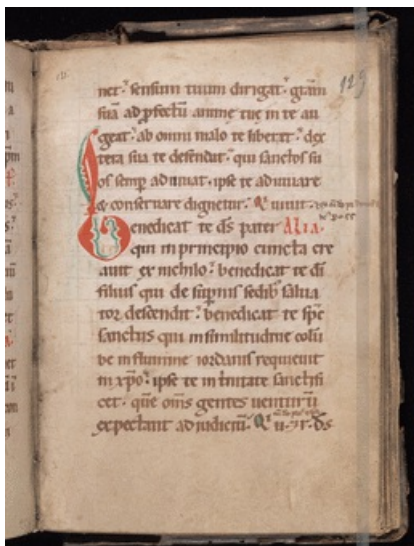 129
net. sensum tuum dirigat. gr̄am
suā ad ꝓfectū anime tue in te au
geat. ab omni malo te liberet. dex
tera sua te defendat. qui sanctos su
os semp̄ adiuuat. ipse te adiuuare
& conseruare dignetur. Q̄ uiuit.
Benedicat te d̄s pater ALIA.
qui in principio cuncta cre
auit ex nichilo. benedicat te dī
filius qui de sup̄nis sedib; salua
tor descendit. benedicat te sp̄c
sanctus qui in similitudine colū
be in flumine iordanis requieuit
in xp̄o. ipse te in trinitate sanctifi
cet. quē om̄s gentes uenturū
expectant ad iudiciū. Q̄ u. ⁊ r. d̄s